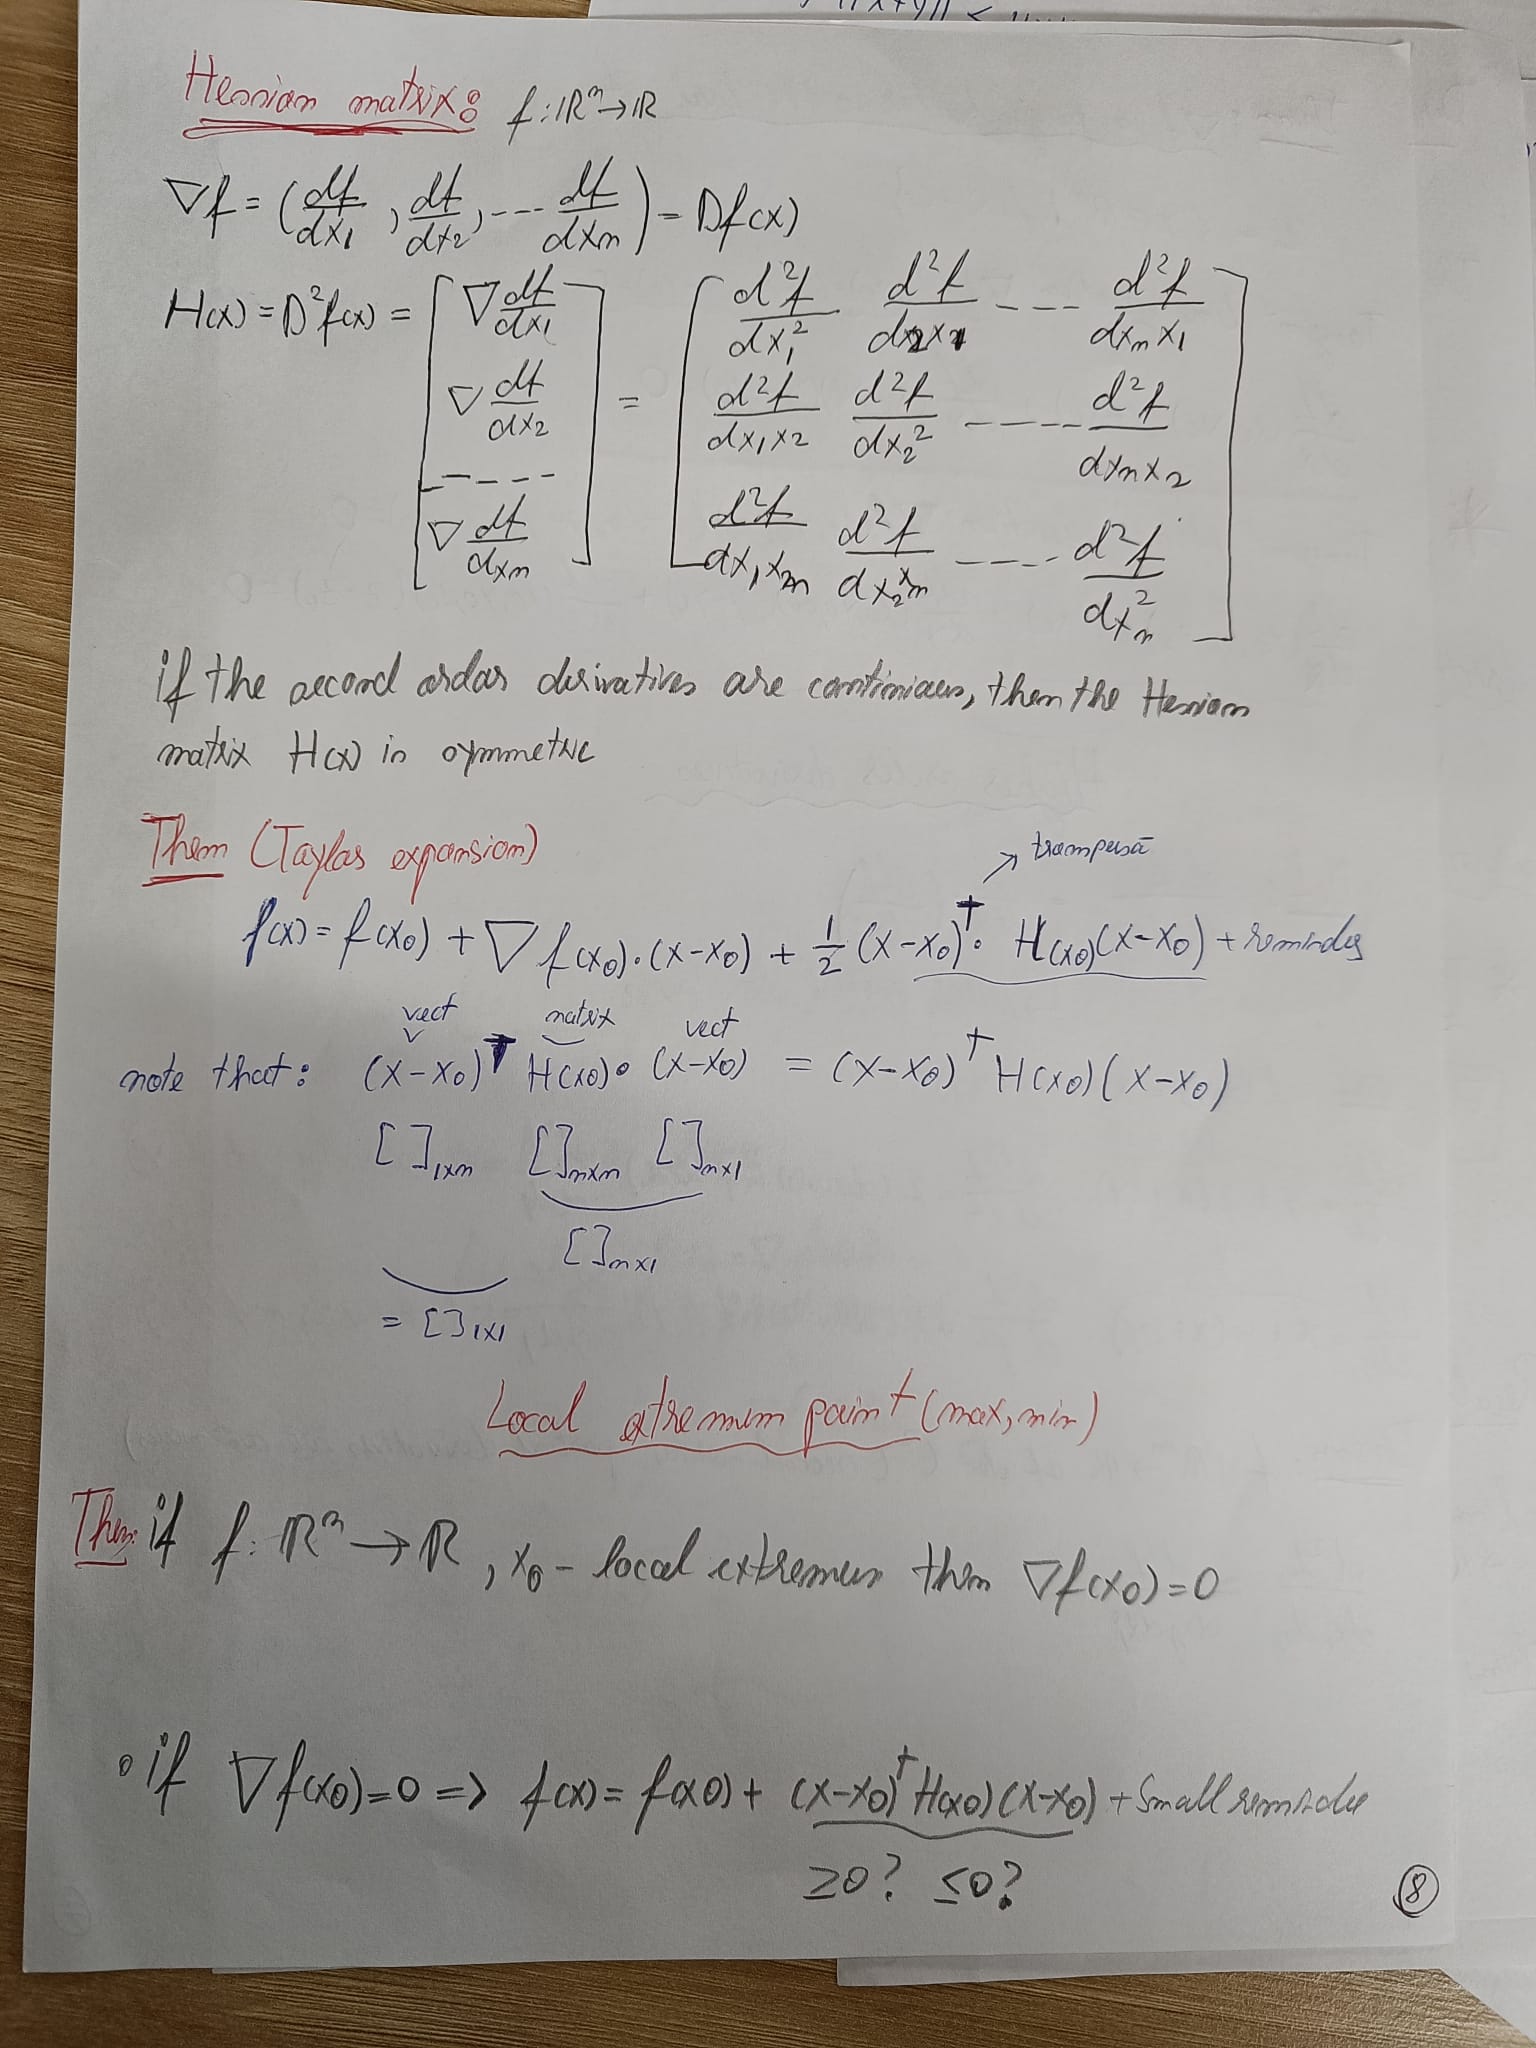 Hessian matrix: f: ℝⁿ→ℝ
∇f = (df/dx₁, df/dx₂, --- df/dxₙ) = Df(x)
H(x) = D²f(x) = [∇ df/dx₁ ; ∇ df/dx₂ ; ---- ; ∇ df/dxₙ] = [d²f/dx₁² d²f/dx₂x₁ --- d²f/dxₙx₁ ; d²f/dx₁x₂ d²f/dx₂² ----- d²f/dxₙx₂ ; d²f/dx₁xₙ d²f/dx₂xₙ ---- d²f/dxₙ²]
if the second order derivatives are continious, then the Hessian
matrix H(x) is symmetric
Them (Taylor expansion)
transpusă
f(x) = f(x₀) + ∇f(x₀)·(x-x₀) + 1/2 (x-x₀)ᵀ· H(x₀)(x-x₀) + reminder
vect matrix vect
note that: (x-x₀)ᵀ H(x₀)· (x-x₀) = (x-x₀)ᵀ H(x₀)(x-x₀)
[ ]₁ₓₙ [ ]ₙₓₙ [ ]ₙₓ₁
[ ]ₙₓ₁
= [ ]₁ₓ₁
Local extremum point (max, min)
Them: if f: ℝⁿ → ℝ, x₀ - local extremum then ∇f(x₀)=0
∘ if ∇f(x₀)=0 => f(x) = f(x₀) + (x-x₀)ᵀ H(x₀)(x-x₀) + small reminder
≥0? ≤0?
8